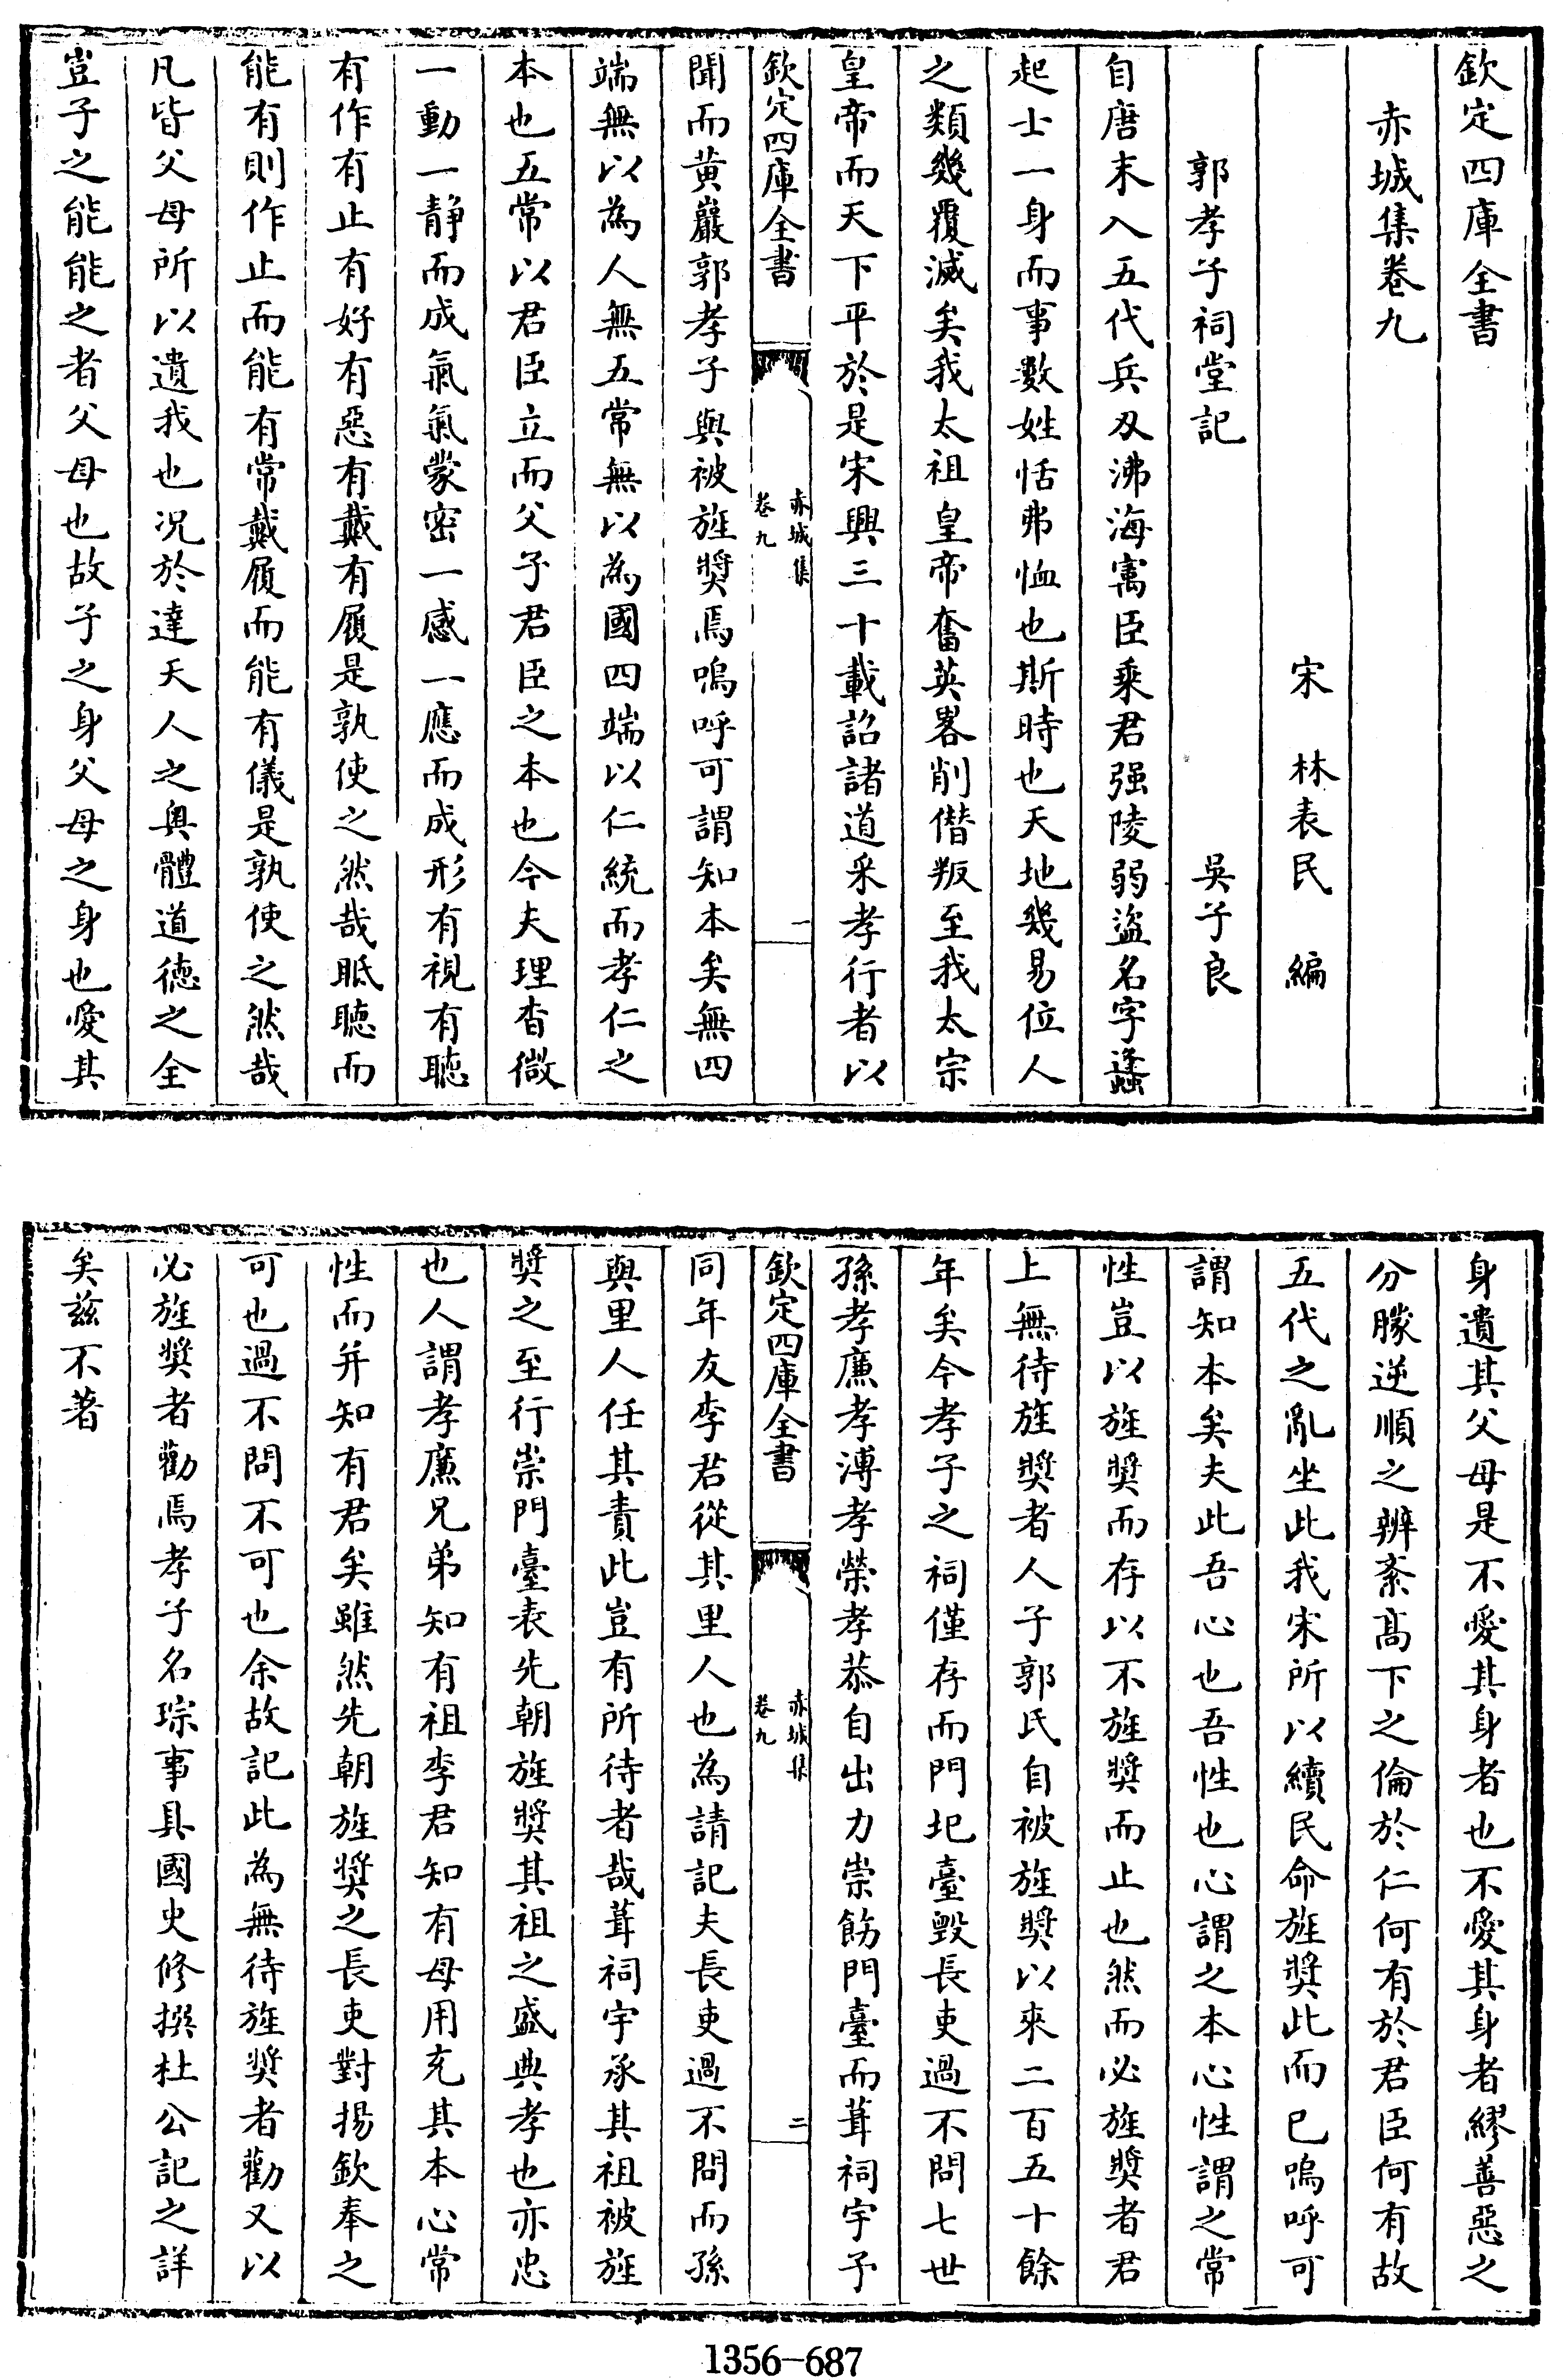 欽定四庫全書
赤城集卷九
宋　林表民　編
郭孝子祠堂記　吳子良
自唐末入五代兵刄沸海㝢臣乘君强陵弱盜名字蠭
起士一身而事數姓恬弗恤也斯時也天地幾易位人
之類幾覆滅矣我太祖皇帝奮英畧削僭叛至我太宗
皇帝而天下平於是宋興三十載詔諸道采孝行者以
欽定四庫全書
赤城集
卷九
一
聞而黃巖郭孝子與被旌奬焉嗚呼可謂知本矣無四
端無以為人無五常無以為國四端以仁統而孝仁之
本也五常以君臣立而父子君臣之本也今夫理杳微
一動一静而成氣氣蒙密一感一應而成形有視有聽
有作有止有好有惡有戴有履是孰使之然哉眡聽而
能有則作止而能有常戴履而能有儀是孰使之然哉
凡皆父母所以遺我也况於達天人之奥體道德之全
豈子之能能之者父母也故子之身父母之身也愛其
身遺其父母是不愛其身者也不愛其身者繆善惡之
分朦逆順之辨紊髙下之倫於仁何有於君臣何有故
五代之亂坐此我宋所以續民命旌奬此而已嗚呼可
謂知本矣夫此吾心也吾性也心謂之本心性謂之常
性豈以旌奬而存以不旌奬而止也然而必旌奬者君
上無待旌奬者人子郭氏自被旌奬以來二百五十餘
年矣今孝子之祠僅存而門圯臺毁長吏過不問七世
孫孝廉孝溥孝榮孝恭自出力崇飭門臺而葺祠宇予
欽定四庫全書
赤城集
卷九
二
同年友李君從其里人也為請記夫長吏過不問而孫
與里人任其責此豈有所待者哉葺祠宇承其祖被旌
奬之至行崇門臺表先朝旌奬其祖之盛典孝也亦忠
也人謂孝廉兄弟知有祖李君知有母用充其本心常
性而并知有君矣雖然先朝旌奬之長吏對揚欽奉之
可也過不問不可也余故記此為無待旌奬者勸又以
必旌奬者勸焉孝子名琮事具國史修撰杜公記之詳
矣兹不著
1356-687